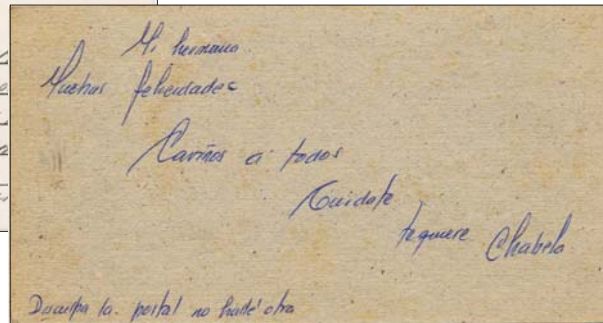 Mi hermano
Muchas felicidades
Cariños a todos
Cuidate
te quiere Chabelo
Disculpa la postal no hallé otra